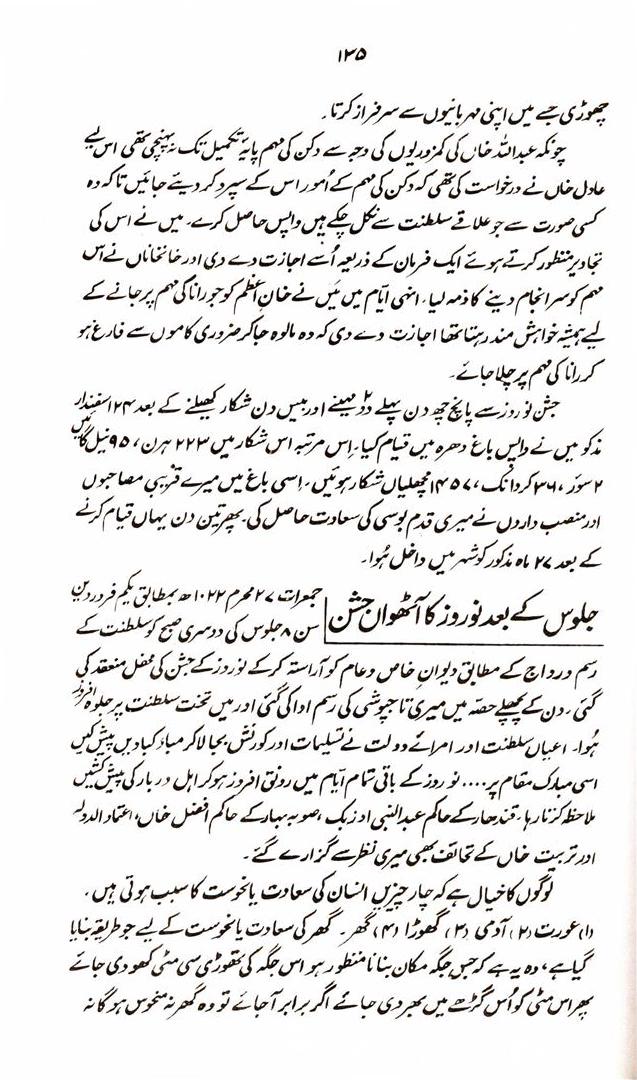 ۱۳۵
چھوڑی جسے میں اپنی مہربانیوں سے سرفراز کرتا۔
چونکہ عبداللہ خاں کی کمزوریوں کی وجہ سے دکن کی مہم پایۂ تکمیل تک نہ پہنچی تھی اس لیے
عادل خاں نے درخواست کی تھی کہ دکن کی مہم کے اُمور اس کے سپرد کر دیئے جائیں تاکہ وہ
کسی صورت سے جو علاقے سلطنت سے نکل چکے ہیں واپس حاصل کرے۔ میں نے اس کی
تجاویز منظور کرتے ہوئے ایک فرمان کے ذریعہ اُسے اجازت دے دی اور خانخاناں نے اس
مہم کو سرانجام دینے کا ذمہ لیا۔ انہی ایّام میں مَیں نے خانِ اعظم کو جو رانا کی مہم پر جانے کے
لیے ہمیشہ خواہش مند رہتا تھا اجازت دے دی کہ وہ مالوہ جا کر ضروری کاموں سے فارغ ہو
کر رانا کی مہم پر چلا جائے۔
جشنِ نو روز سے پانچ چھ دن پہلے دو ۲ مہینے اور بیس دن شکار کھیلنے کے بعد ۲۴ اسفندار
مذکو میں نے واپس باغ دھرہ میں قیام کیا۔ اس مرتبہ اس شکار میں ۲۲۳ ہرن، ۹۵ نیل گائیں
۲ سوٗر، ۳۶ کردانک، ۱۴۵۷ مچھلیاں شکار ہوئیں۔ اسی باغ میں میرے قریبی مصاحبوں
اور منصب داروں نے میری قدم بوسی کی سعادت حاصل کی۔ پھر تین دن یہاں قیام کرنے
کے بعد ۲۷ ماہ مذکور کو شہر میں داخل ہُوا۔
جلوس کے بعد نوروز کا آٹھواں جشن
جمعرات ۲۷ محرم ۱۰۲۲ھ بمطابق یکم فروردین
سن ۸ جلوس کی دوسری صبح کو سلطنت کے
رسم و رواج کے مطابق دیوانِ خاص و عام کو آراستہ کر کے نوروز کے جشن کی محفل منعقد کی
گئی۔ دن کے پچھلے حصہ میں میری تاجپوشی کی رسم ادا کی گئی اور میں تخت سلطنت پر جلوہ افروز
ہُوا۔ اعیانِ سلطنت اور امرائے دولت نے تسلیمات اور کورنش بجا لا کر مبارکبادیں پیش کیں
اسی مبارک مقام پر.... نوروز کے باقی تمام ایّام میں رونق افروز ہو کر اہلِ دربار کی پیش کشیں
ملاحظہ کرتا رہا۔ قندھار کے حاکم عبدالنبی اوزبک، صوبہ بہار کے حاکم افضل خاں، اعتماد الدولہ
اور تربیت خاں کے تحائف بھی میری نظر سے گزارے گئے۔
لوگوں کا خیال ہے کہ چار چیزیں انسان کی سعادت یا نحوست کا سبب ہوتی ہیں۔
(۱) عورت (۲) آدمی (۳) گھوڑا (۴) گھر۔ گھر کی سعادت یا نحوست کے لیے جو طریقہ بنایا
گیا ہے، وہ یہ ہے کہ جس جگہ مکان بنانا منظور ہو اس جگہ کی تھوڑی سی مٹی کھودی جائے
پھر اس مٹی کو اُس گڑھے میں بھر دی جائے اگر برابر آ جائے تو وہ گھر نہ منحوس ہو گا نہ